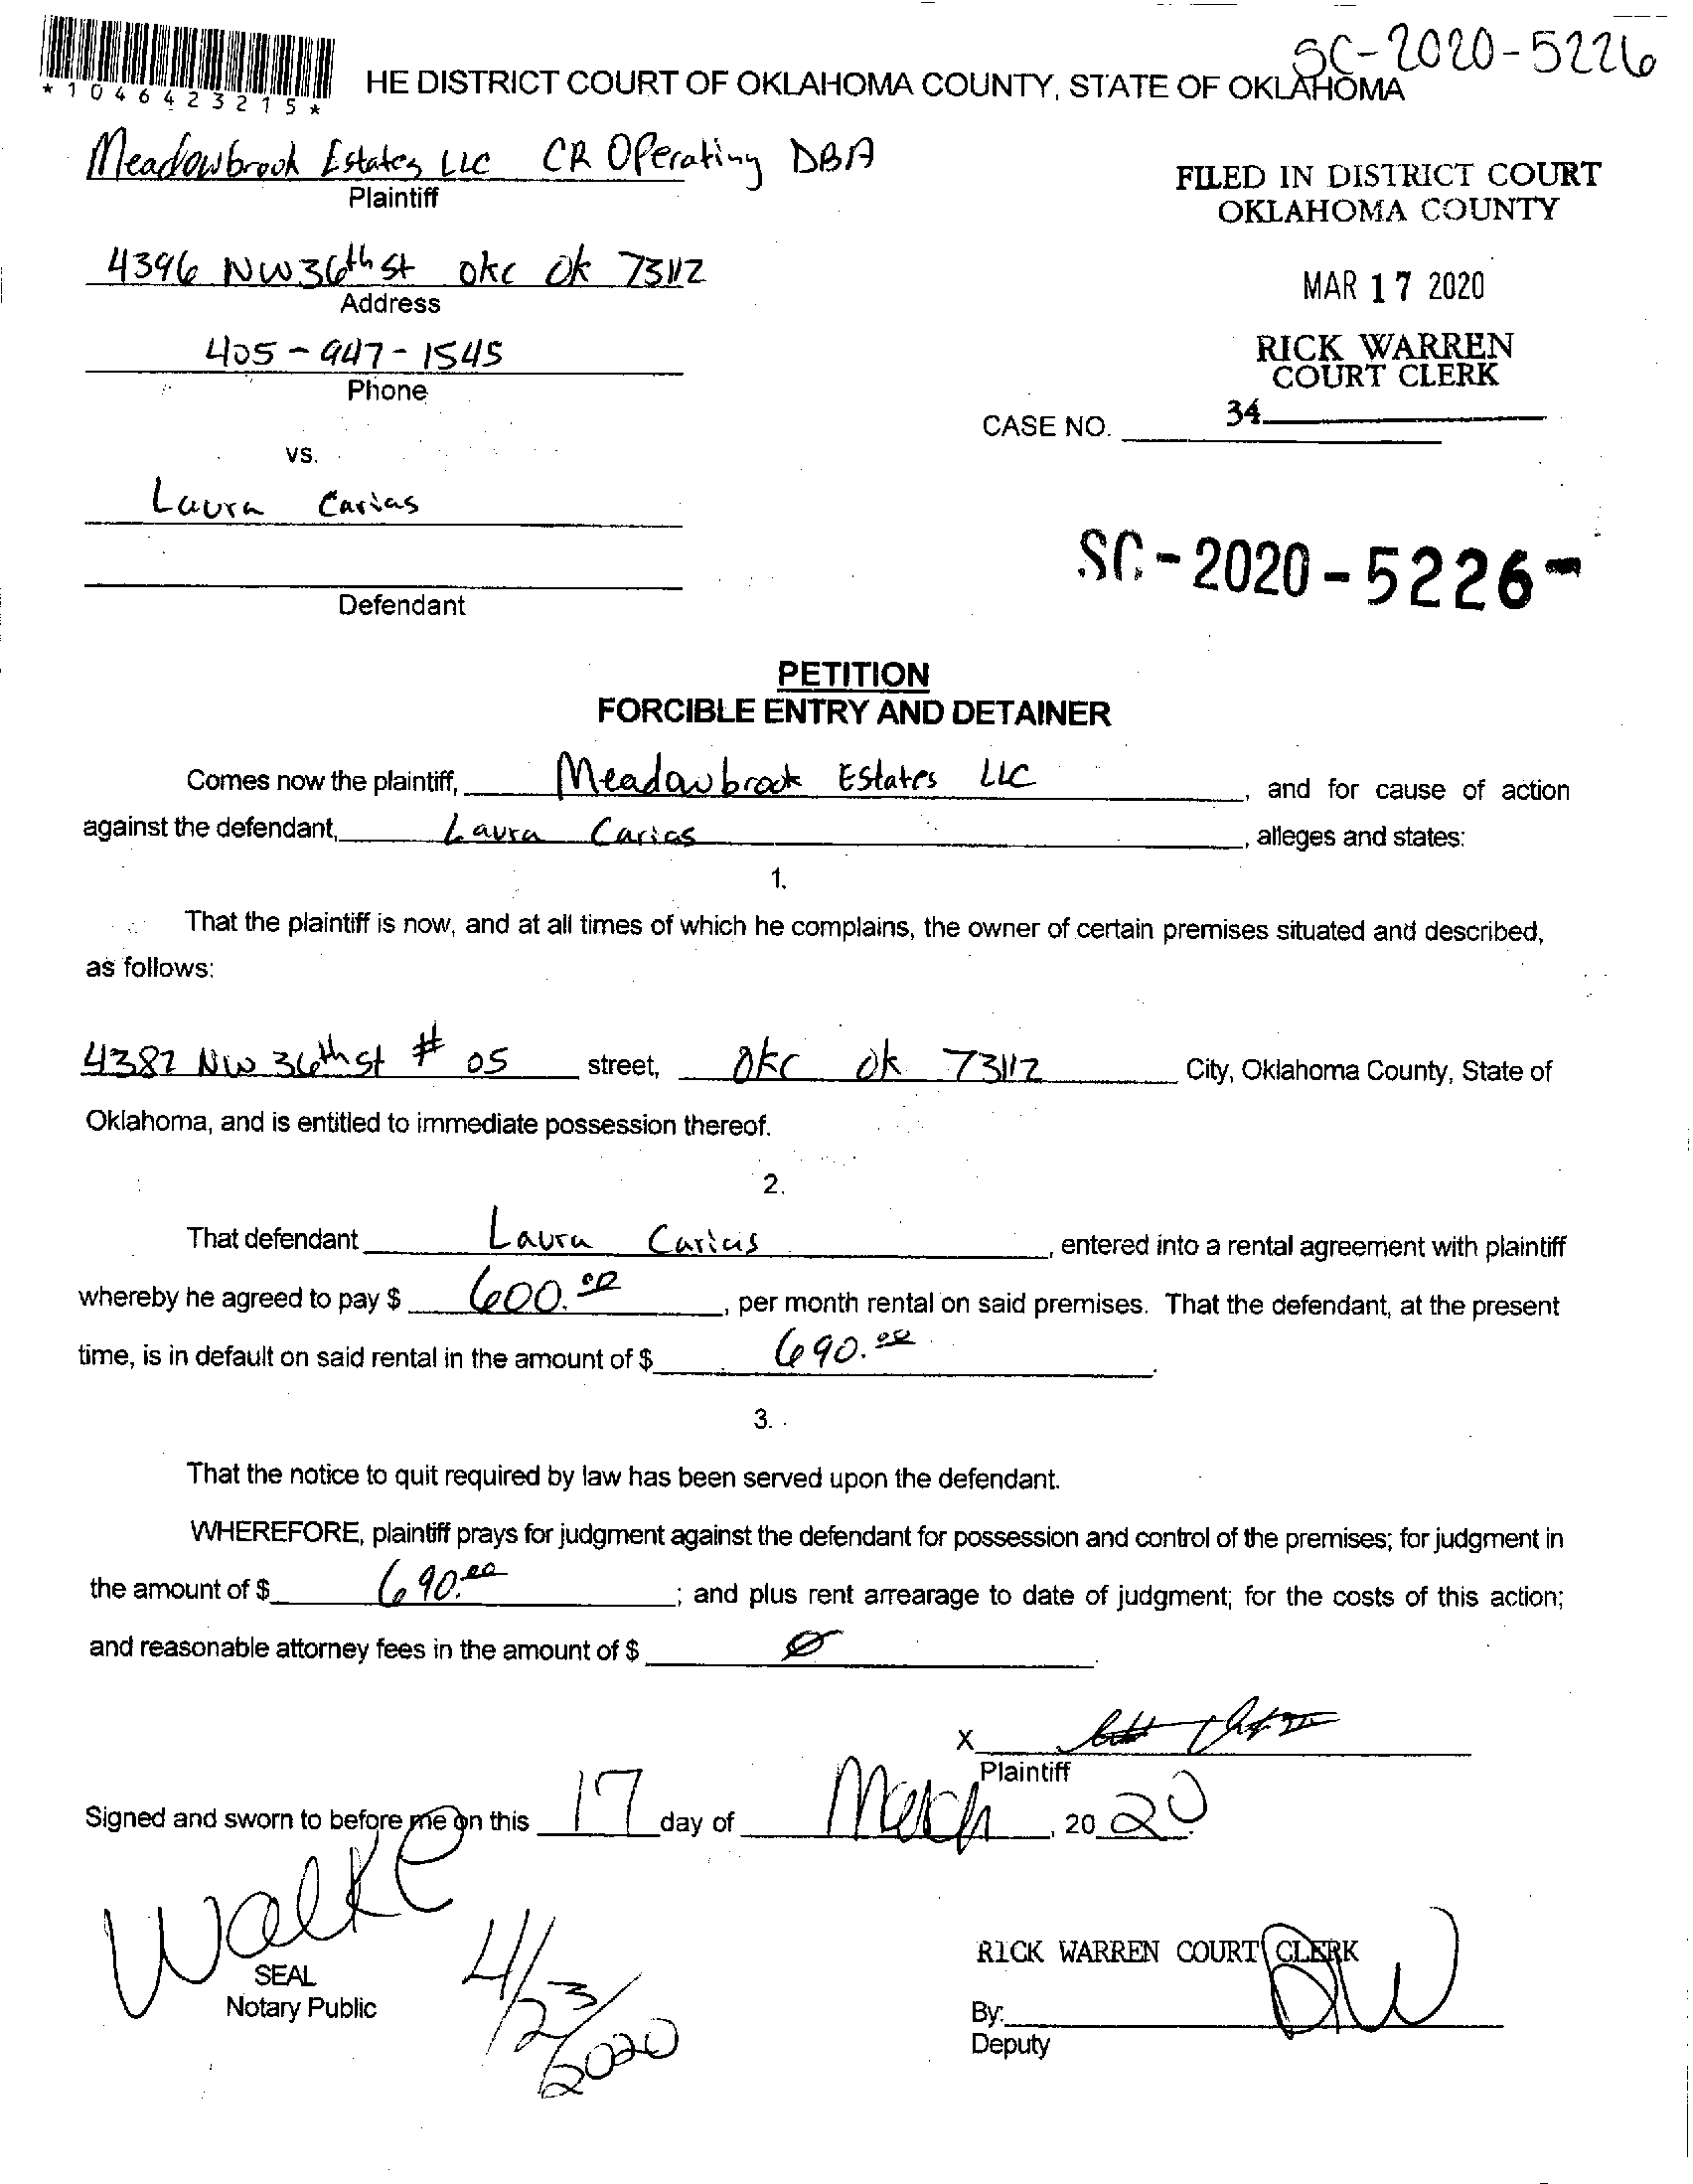 SC-2020-5226
*1046423215*
HE DISTRICT COURT OF OKLAHOMA COUNTY, STATE OF OKLAHOMA
Meadowbrook Estates LLC CR Operating DBA
Plaintiff
FILED IN DISTRICT COURT
OKLAHOMA COUNTY
4396 NW 36th st okc ok 73112
Address
MAR 17 2020
405-947-1545
Phone
RICK WARREN
COURT CLERK
34
CASE NO.
vs.
Laura Carias
SC-2020-5226-
Defendant
PETITION
FORCIBLE ENTRY AND DETAINER
Comes now the plaintiff, Meadowbrook Estates LLC, and for cause of action
against the defendant, Laura Carias, alleges and states:
1.
That the plaintiff is now, and at all times of which he complains, the owner of certain premises situated and described,
as follows:
4382 NW 36th st # 05 street, okc ok 73112 City, Oklahoma County, State of
Oklahoma, and is entitled to immediate possession thereof.
2.
That defendant Laura Carias, entered into a rental agreement with plaintiff
whereby he agreed to pay $ 600.00, per month rental on said premises. That the defendant, at the present
time, is in default on said rental in the amount of $ 690.00.
3.
That the notice to quit required by law has been served upon the defendant.
WHEREFORE, plaintiff prays for judgment against the defendant for possession and control of the premises; for judgment in
the amount of $ 690.00; and plus rent arrearage to date of judgment; for the costs of this action;
and reasonable attorney fees in the amount of $ Ø
X
Plaintiff
Signed and sworn to before me on this 17 day of March, 20 20
Walke
SEAL
Notary Public
4/23/2020
RICK WARREN COURT CLERK
By: DW
Deputy